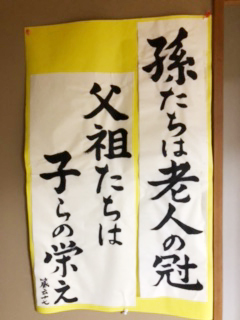 孫たちは老人の冠
父祖たちは
子らの栄え